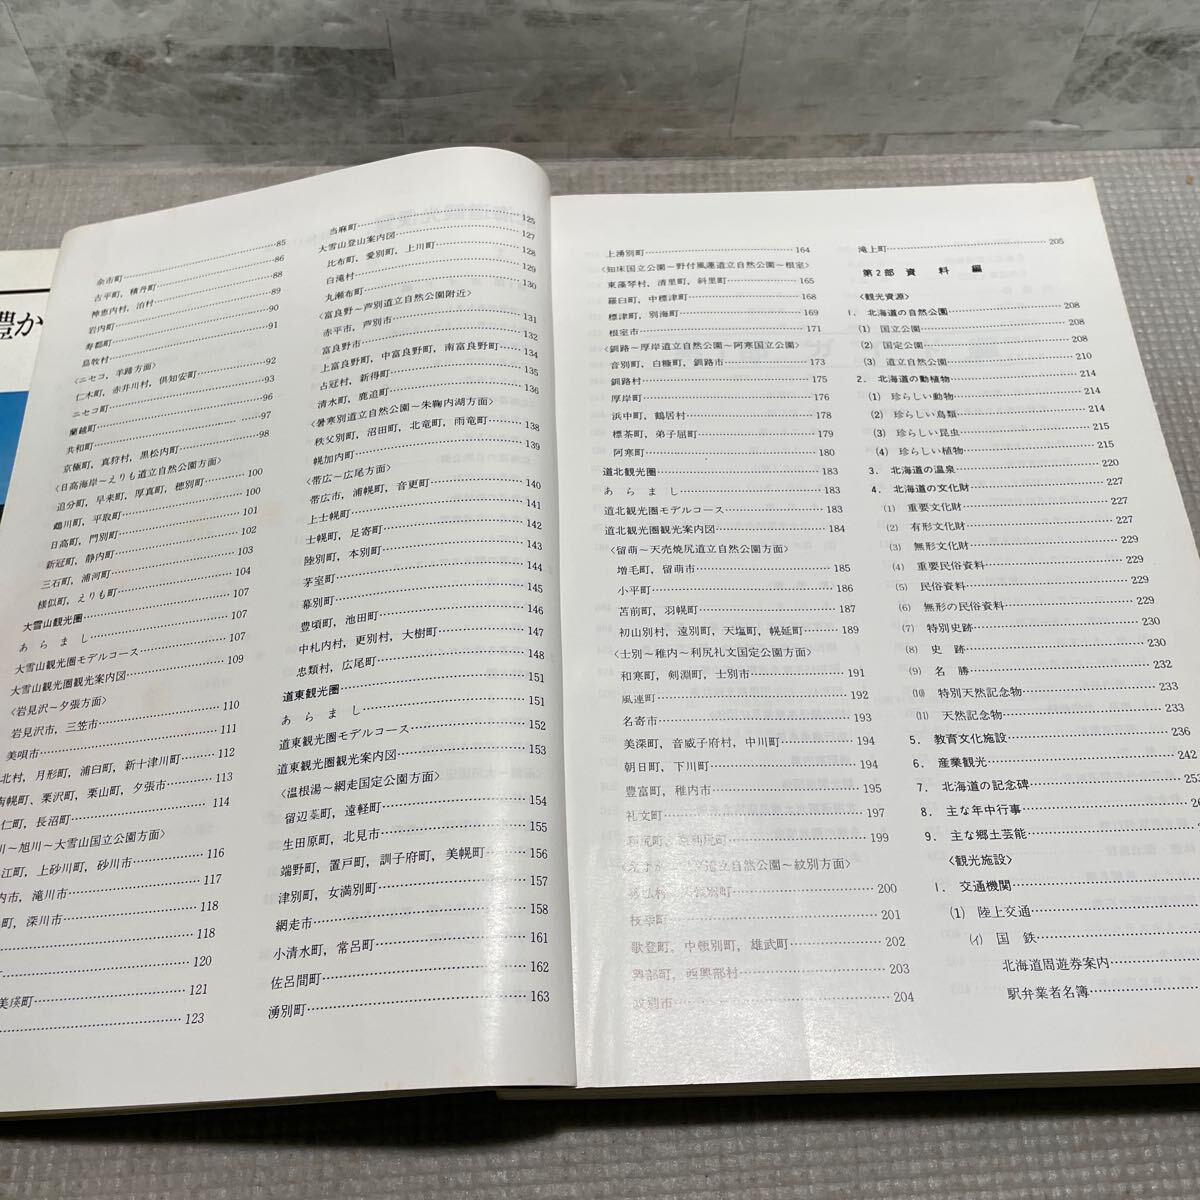 豊か
……85
余市町……86
古平町，積丹町……88
神恵内村，泊村……89
岩内町……90
寿都町……91
島牧村
〈ニセコ，羊蹄方面〉
仁木町，赤井川村，倶知安町……92
ニセコ町……93
蘭越町……96
共和町……97
京極町，真狩村，黒松内町……98
〈日高海岸～えりも道立自然公園方面〉
追分町，早来町，厚真町，穂別町……100
鵡川町，平取町……100
日高町，門別町……101
新冠町，静内町……102
三石町，浦河町……103
様似町，えりも町……104
大雪山観光圏……107
あらまし……107
大雪山観光圏モデルコース……107
大雪山観光圏観光案内図……109
〈岩見沢～夕張方面〉
岩見沢市，三笠市……110
美唄市……111
北村，月形町，浦臼町，新十津川町……112
南幌町、栗沢町，栗山町，夕張市……113
仁町，長沼町……114
川～旭川～大雪山国立公園方面〉
江町，上砂川町，砂川市……116
内市，滝川市……117
町，深川市……118
……118
……120
美瑛町……121
……123
当麻町……125
大雪山登山案内図……127
比布町，愛別町，上川町……128
白滝村……129
丸瀬布町……130
〈富良野～芦別道立自然公園附近〉
赤平市，芦別市……131
富良野市……132
上富良野町，中富良野町，南富良野町……134
占冠村，新得町……135
清水町，鹿追町……136
〈暑寒別道立自然公園～朱鞠内湖方面〉
秩父別町，沼田町，北竜町，雨竜町……138
幌加内町……139
〈帯広～広尾方面〉
帯広市，浦幌町，音更町……140
上士幌町……141
士幌町，足寄町……142
陸別町，本別町……143
芽室町……144
幕別町……145
豊頃町，池田町……146
中札内村，更別村，大樹町……147
忠類村，広尾町……148
道東観光圏……151
あらまし……151
道東観光圏モデルコース……152
道東観光圏観光案内図……153
〈温根湯～網走国定公園方面〉
留辺蘂町，遠軽町……154
生田原町，北見市……155
端野町，置戸町，訓子府町，美幌町……156
津別町，女満別町……157
網走市……158
小清水町，常呂町……161
佐呂間町……162
湧別町……163
上湧別町……164
〈知床国立公園～野付風蓮道立自然公園～根室〉
東藻琴村，清里町，斜里町……165
羅臼町，中標津町……168
標津町，別海町……169
根室市……171
〈釧路～厚岸道立自然公園～阿寒国立公園〉
音別町，白糠町，釧路市……173
釧路村……175
厚岸町……176
浜中町，鶴居村……178
標茶町，弟子屈町……179
阿寒町……180
道北観光圏……183
あらまし……183
道北観光圏モデルコース……183
道北観光圏観光案内図……184
〈留萌～天売焼尻道立自然公園方面〉
増毛町，留萌市……185
小平町……186
苫前町，羽幌町……187
初山別村，遠別町，天塩町，幌延町……189
〈士別～稚内～利尻礼文国定公園方面〉
和寒町，剣淵町，士別市……191
風連町……192
名寄市……193
美深町，音威子府村，中川町……194
朝日町，下川町……194
豊富町，稚内市……195
礼文町……197
利尻町，東利尻町……199
道立自然公園～紋別方面〉
……200
枝幸町……201
歌登町，中頓別町，雄武町……202
興部町，西興部村……203
紋別市……204
滝上町……205
第2部 資料編
〈観光資源〉
1．北海道の自然公園……208
(1) 国立公園……208
(2) 国定公園……208
(3) 道立自然公園……210
2．北海道の動植物……214
(1) 珍らしい動物……214
(2) 珍らしい鳥類……214
(3) 珍らしい昆虫……215
(4) 珍らしい植物……215
3．北海道の温泉……220
4．北海道の文化財……227
(1) 重要文化財……227
(2) 有形文化財……227
(3) 無形文化財……229
(4) 重要民俗資料……229
(5) 民俗資料……229
(6) 無形の民俗資料……229
(7) 特別史跡……230
(8) 史跡……230
(9) 名勝……232
(10) 特別天然記念物……233
(11) 天然記念物……233
5．教育文化施設……236
6．産業観光……242
7．北海道の記念碑……253
8．主な年中行事……
9．主な郷土芸能……
〈観光施設〉
1．交通機関……
(1) 陸上交通……
(イ) 国鉄……
北海道周遊券案内……
駅弁業者名簿……